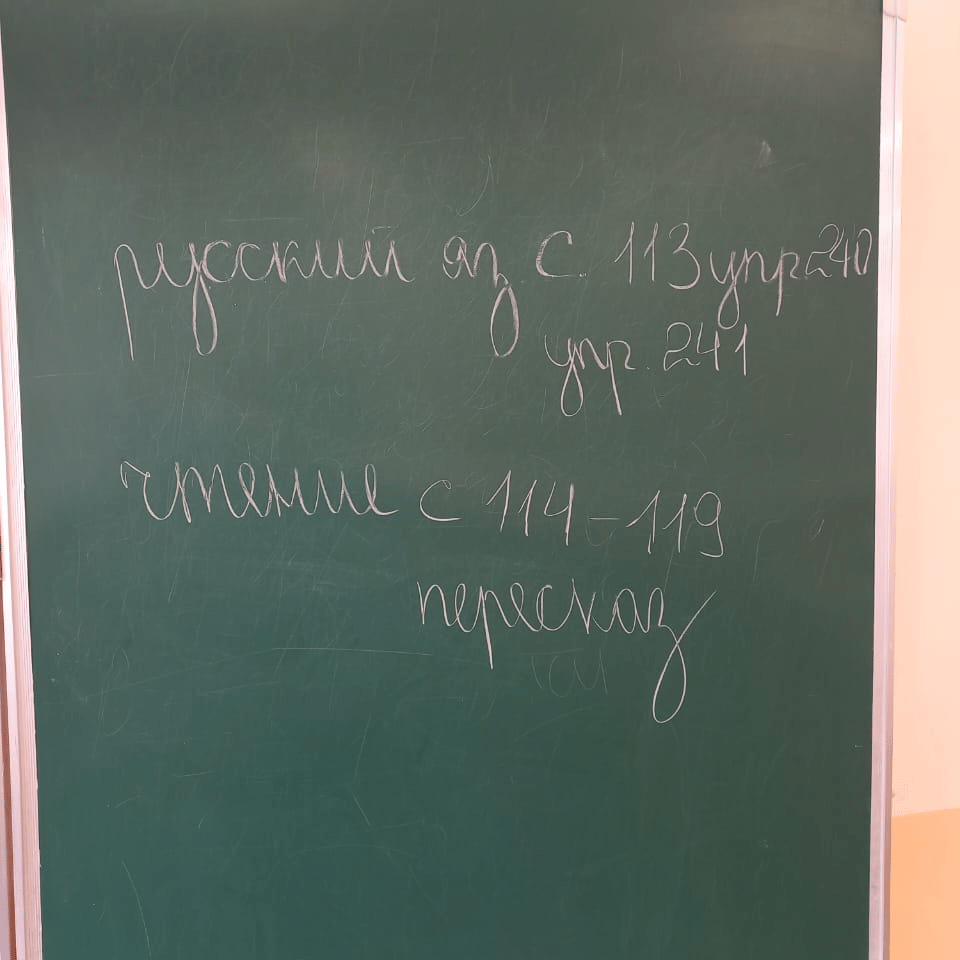 русский яз. с. 113 упр 240
упр. 241
чтение с 114 – 119
пересказ